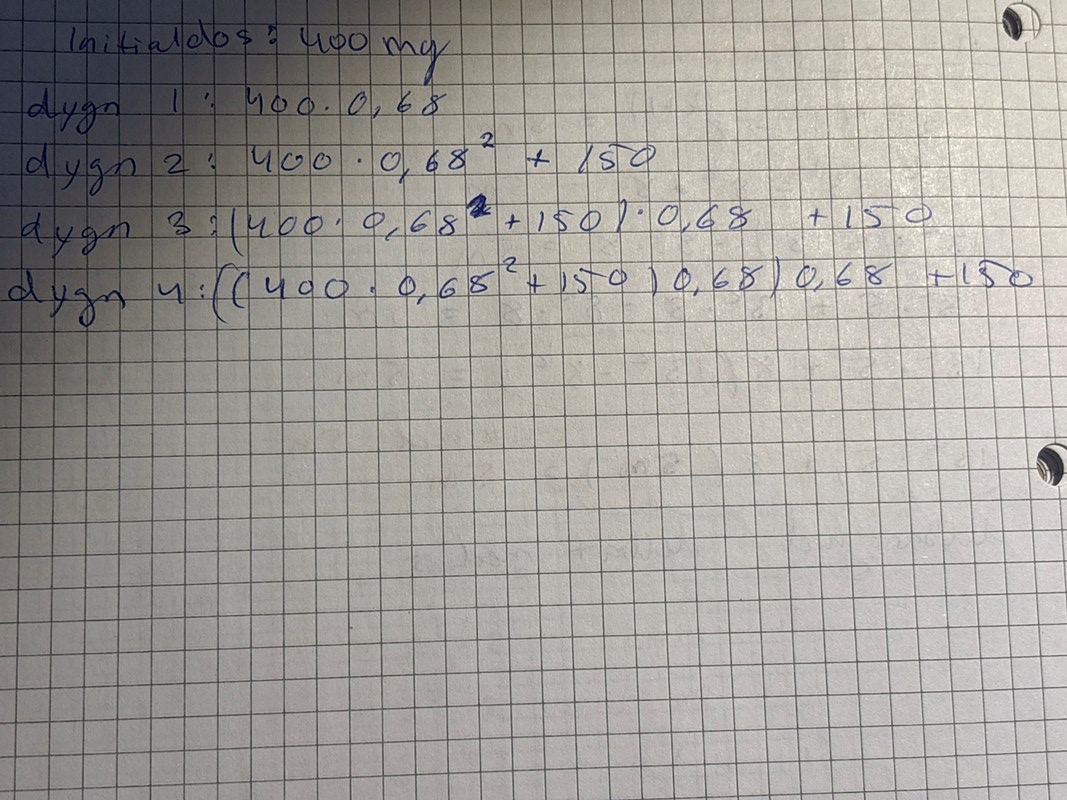 Initialdos: 400 mg
dygn 1: 400 · 0,68
dygn 2: 400 · 0,68² + 150
dygn 3: (400 · 0,68² + 150) · 0,68 + 150
dygn 4: ((400 · 0,68² + 150) 0,68) 0,68 + 150